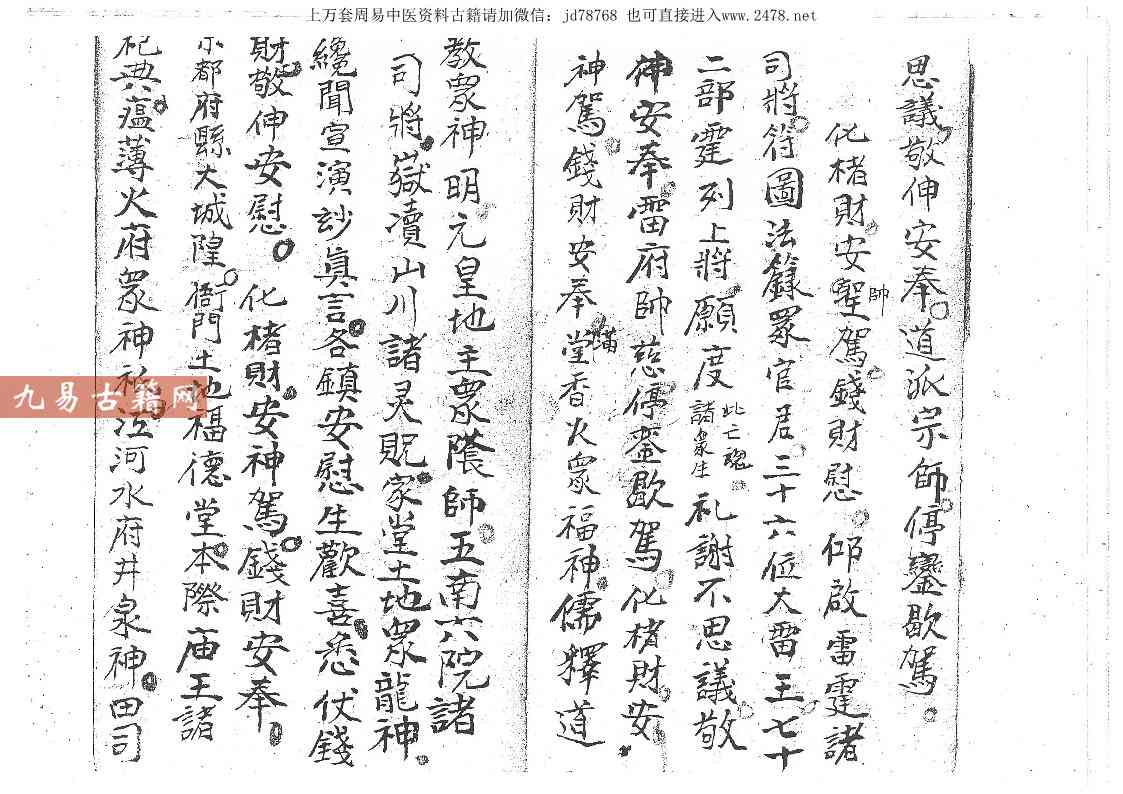 上万套周易中医资料古籍请加微信：jd78768 也可直接进入www.2478.net
思議敬伸安奉道派宗師停鑾歇駕
化楮財安聖駕錢財慰仰啟雷霆諸
帥
司將符圖法籙眾官君三十六位大雷王七十
二部霆列上將願度此亡魂諸衆生礼謝不思議敬
伸安奉雷府帥慈停鑾歇駕化楮財安
神駕錢財安奉滿堂香火眾福神儒釋道
教眾神明元皇地主眾師五南六院諸
司將嶽瀆山川諸灵貺家堂土地眾龍神
纔聞宣演玅真言各鎮安慰生歡喜悉仗錢
財敬伸安慰化楮財安神駕錢財安奉
都府縣大城隍衙門土地福德堂本際庙王諸
祀典瘟薄火府眾神祇江河水府井泉神田司
九易古籍网